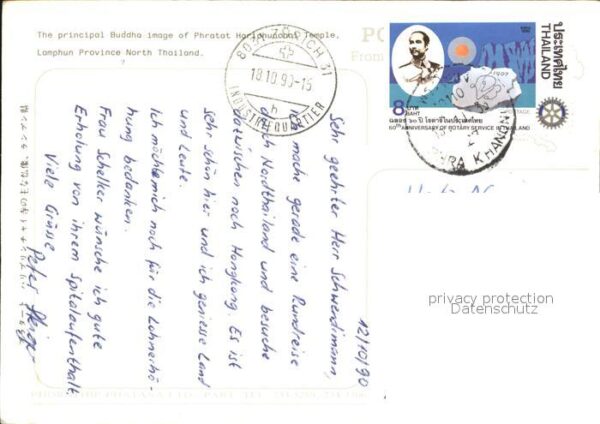 The principal Buddha image of Phratat Hariphunchai Temple,
Lamphun Province North Thailand.
8031 ZÜRICH 31
18.10.90-15
h
INDUSTRIEQUARTIER
ประเทศไทย
THAILAND
1907
8 บาท
BAHT
ฉลอง ๖๐ ปี โรตารีในประเทศไทย
60TH ANNIVERSARY OF ROTARY SERVICE IN THAILAND
PO
From
12/10/90
Sehr geehrter Herr Schwendimann,
Ich mache gerade eine Rundreise
durch Nordthailand und besuche
dazwischen noch Hongkong. Es ist
sehr schön hier und ich geniesse Land
und Leute.
Ich möchte mich noch für die Lohnerhö-
hung bedanken.
Frau Schelker wünsche ich gute
Erholung von ihrem Spitalaufenthalt.
Viele Grüsse
Peter
privacy protection
Datenschutz